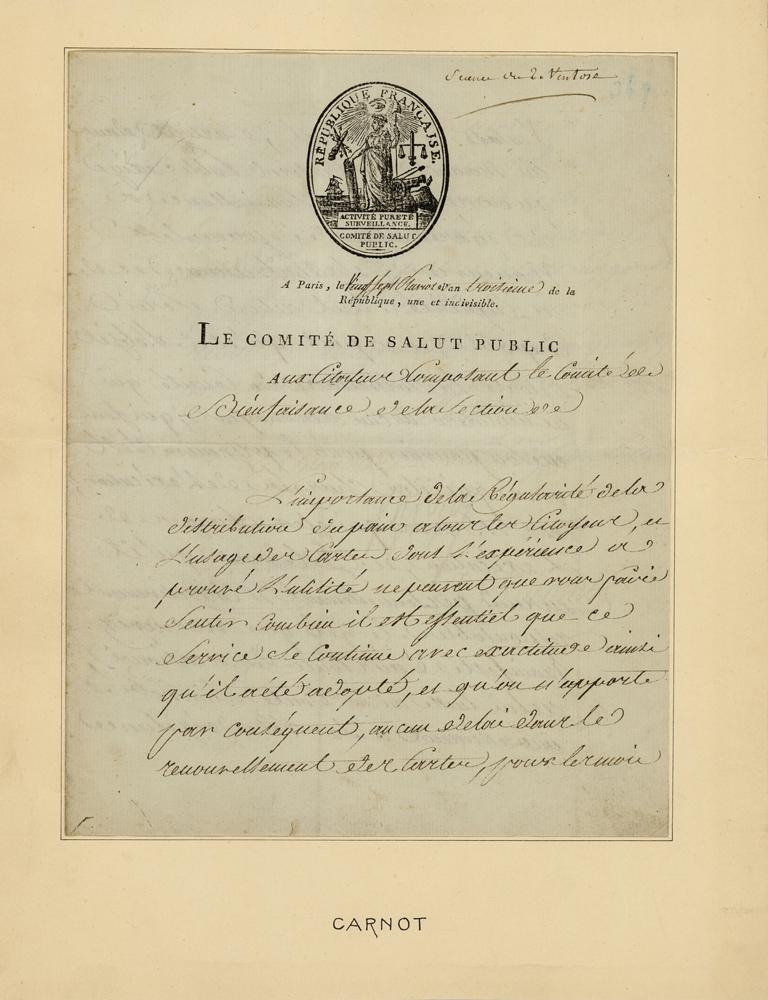 Séance du 2 Ventose
RÉPUBLIQUE FRANÇAISE.
ACTIVITÉ PURETÉ
SURVEILLANCE.
COMITÉ DE SALUT
PUBLIC.
A Paris, le Vingt sept Pluviose l'an troisieme de la
République, une et indivisible.
LE COMITÉ DE SALUT PUBLIC
Aux Citoyens Composant le Comité de
Bienfaisance de la Section de
L'importance de la Régularité de la
distribution du pain a tous les Citoyens, et
L'usage des Cartes dont L'expérience a
prouvé L'utilité ne peuvent que vous faire
Sentir combien il est essentiel que ce
Service se Continue avec exactitude ainsi
qu'il a été adopté, et qu'on n'apporte
par conséquent, aucun délai dans le
renouvellement des Cartes, pour le mois
CARNOT